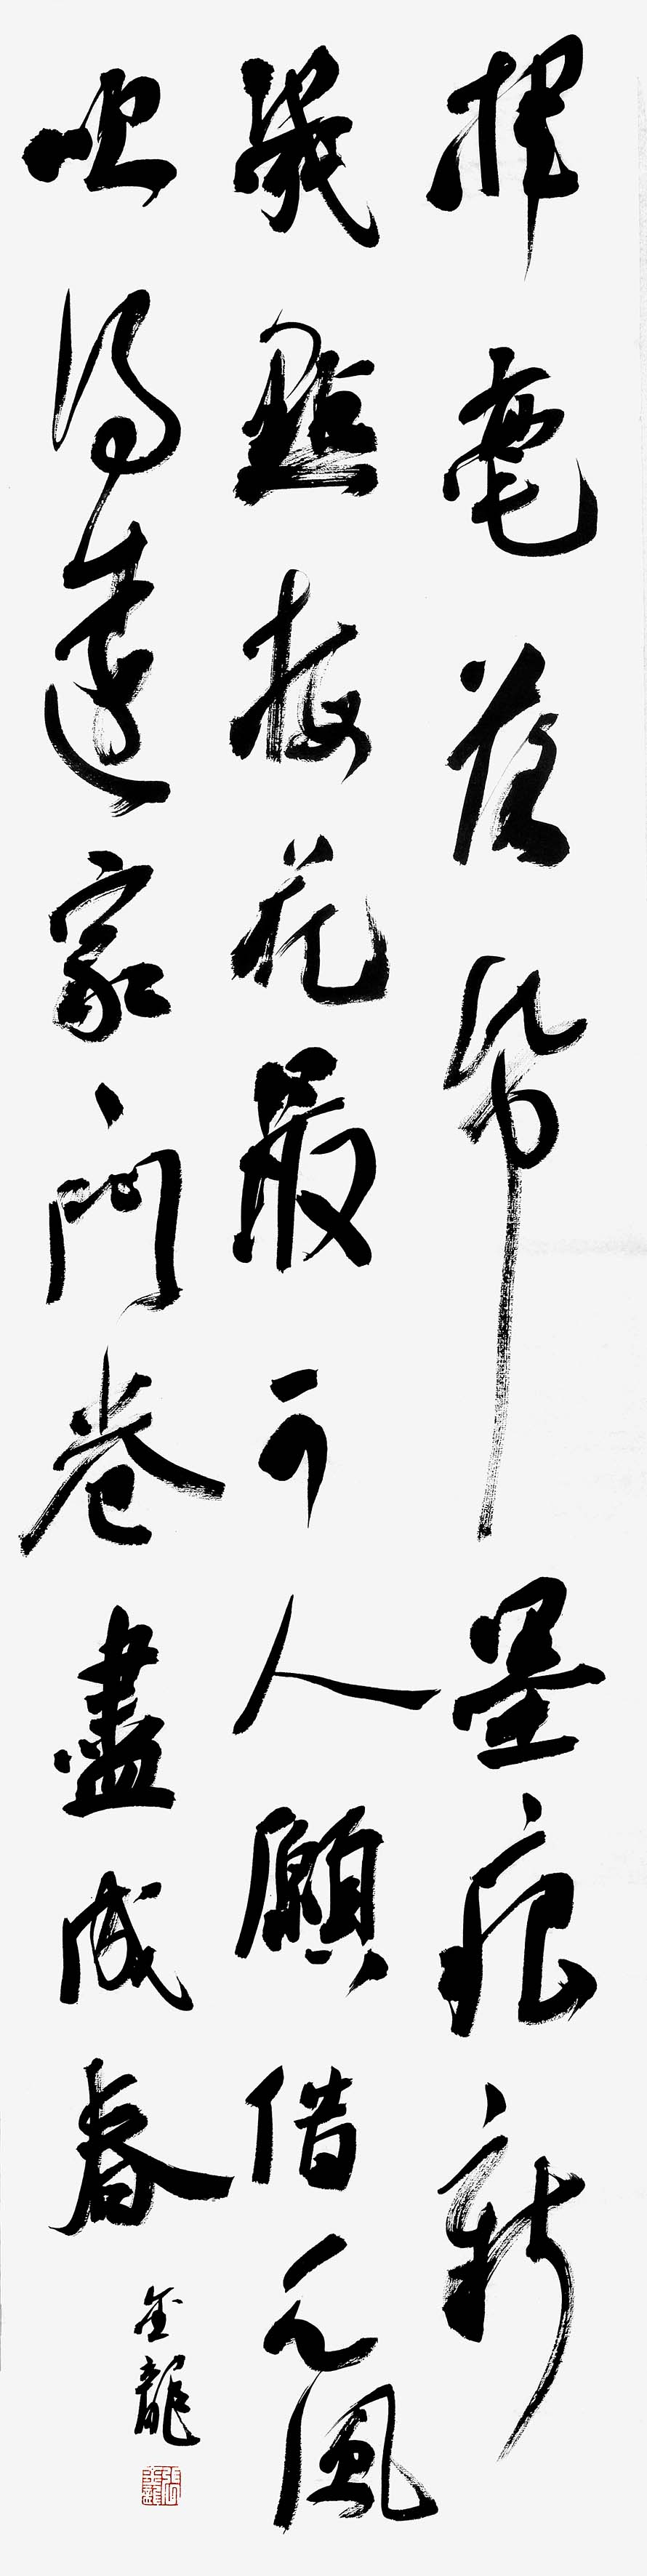 揮毫落帋墨痕新
幾點梅花最可人願借天風
吹得遠家々門巷盡成春
金龍